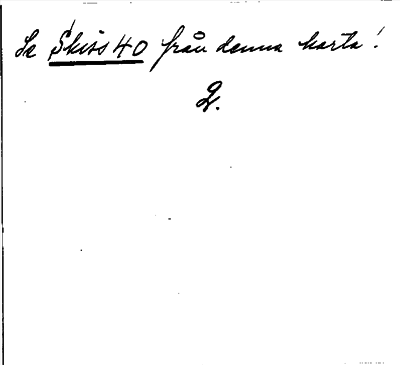 Se Skiss 40 från denna karta!
2.